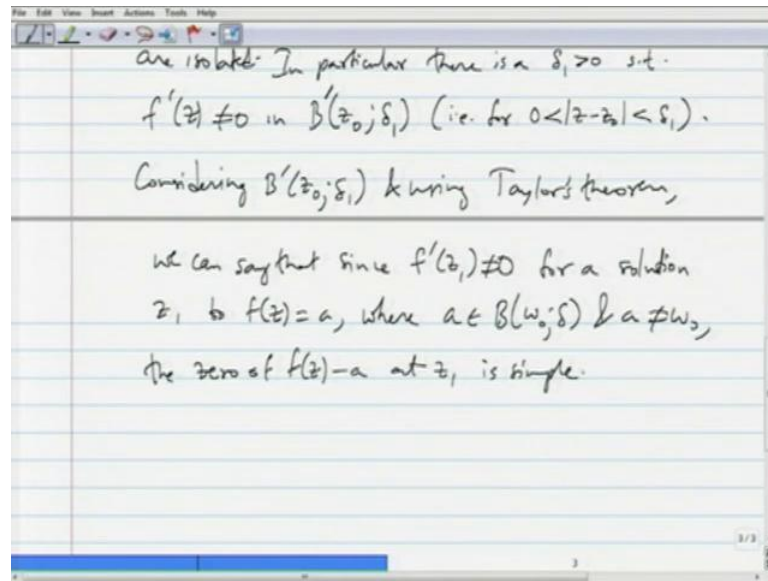 File Edit View Insert Actions Tools Help
are isolated. In particular there is a δ₁>0 s.t.
f'(z) ≠0 in B'(z₀;δ₁) (i.e. for 0<|z-z₀|<δ₁).
Considering B'(z₀;δ₁) & using Taylor's theorem,
we can say that since f'(z₁)≠0 for a solution
z₁ to f(z)=a, where a∈B(w₀;δ) & a≠w₀,
the zero of f(z)-a at z₁ is simple.
3/3
3